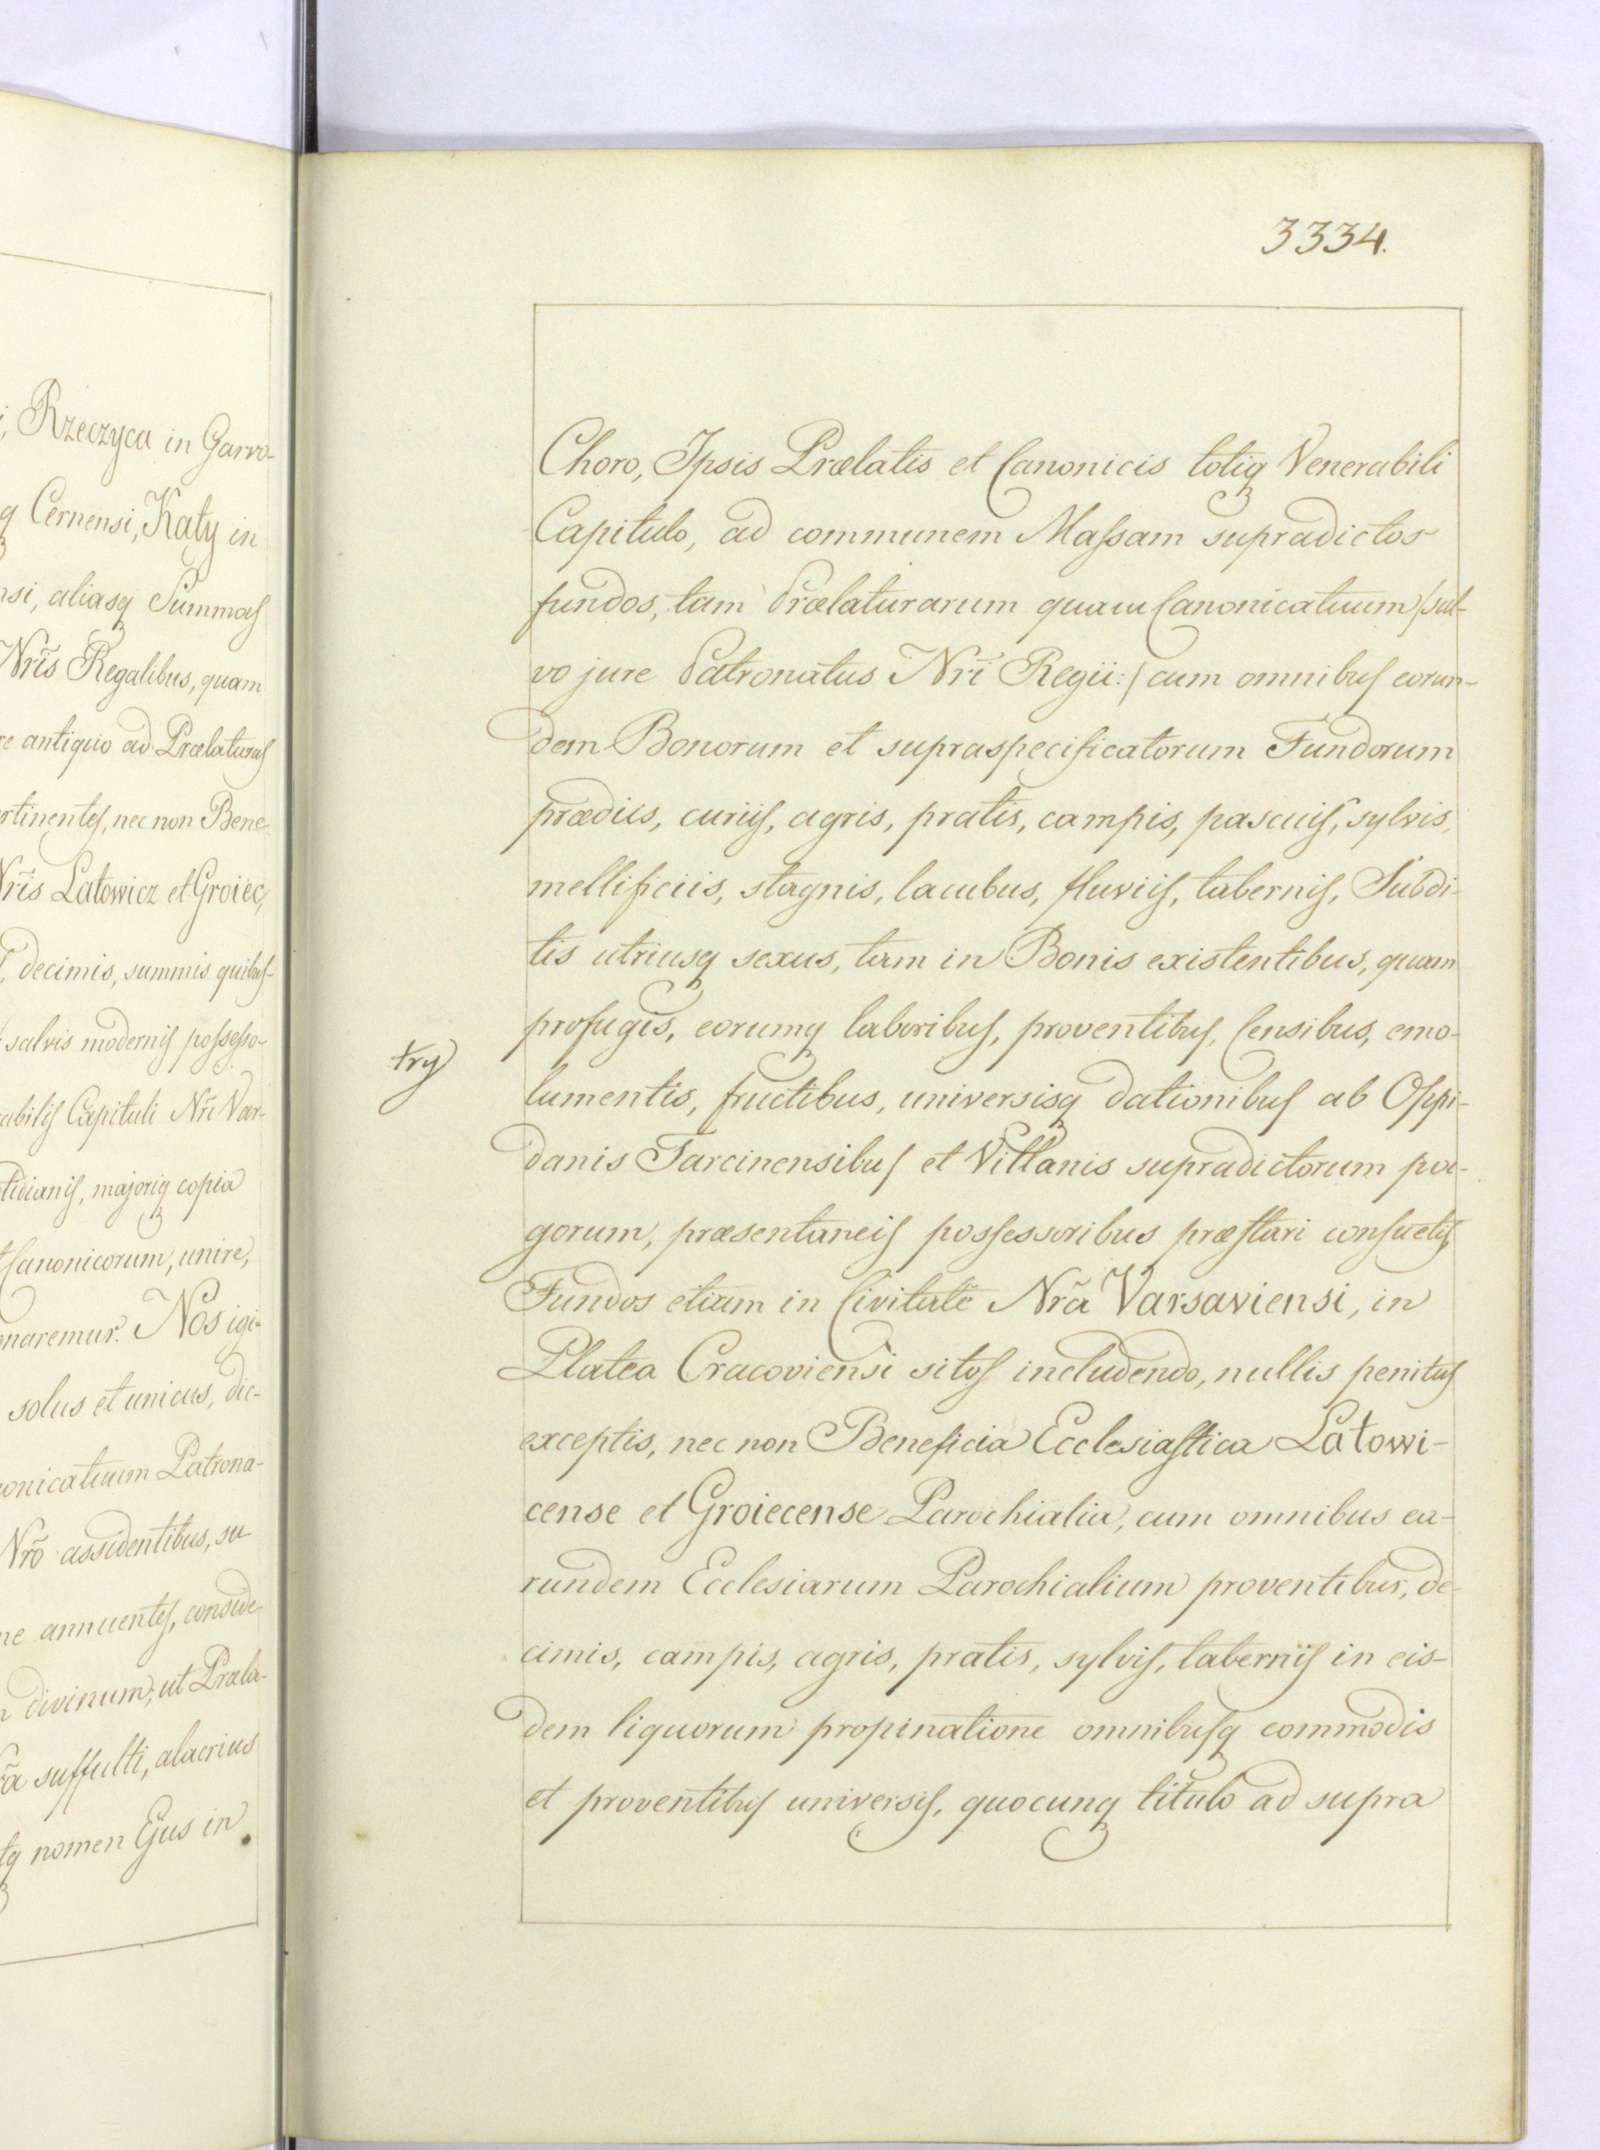 i, Rzeczyca in Garvo-
q Cernensi, Katy in
nsi, aliasq Summas
Nr̃is Regalibus, quam
re antiquo ad Prælaturas
rtinentes, nec non Bene-
Nr̃is Latowicz et Groiec,
decimis, summis quibus-
salvis modernis possesso-
rabilis Capituli Nr̃i Var-
tidianis, majoriq copia
Canonicorum, unire,
onaremur. Nos igi-
solus et unicus, dic-
onicatuum Patrona-
Nr̃o assidentibus, su
ne annuentes, conside-
n divinum, ut Præla-
r̃a suffulti, alacrius
tq nomen Ejus in
3334.
Choro, Ipsis Prælatis et Canonicis totiq Venerabili
Capitulo, ad communem Massam supradictos
fundos, tam Prælaturarum quam Canonicatuum /sal-
vo jure Patronatus Nr̃i Regii:/ cum omnibus eorun-
dem Bonorum et supraspecificatorum Fundorum
prædiis, curiis, agris, pratis, campis, pascuis, sylvis,
mellificiis, stagnis, lacubus, fluviis, tabernis, Subdi-
tis utriusq sexus, tam in Bonis existentibus, quam
profugis, eorumq laboribus, proventibus, Censibus, emo-
try
lumentis, fructibus, universisq dationibus ab Oppi-
danis Tarcinensibus et Villanis supradictorum pa-
gorum, præsentaneis possessoribus præstari consuetis,
Fundos etiam in Civitate Nr̃a Varsaviensi, in
Platea Cracoviensi sitos includendo, nullis penitus
exceptis, nec non Beneficia Ecclesiastica Latowi-
cense et Groiecense Parochialia, cum omnibus ea-
rundem Ecclesiarum Parochialium proventibus, de-
cimis, campis, agris, pratis, sylvis, taberniis in eis-
dem liquorum propinatione omnibusq commodis
et proventibus universis, quocunq titulo ad supra